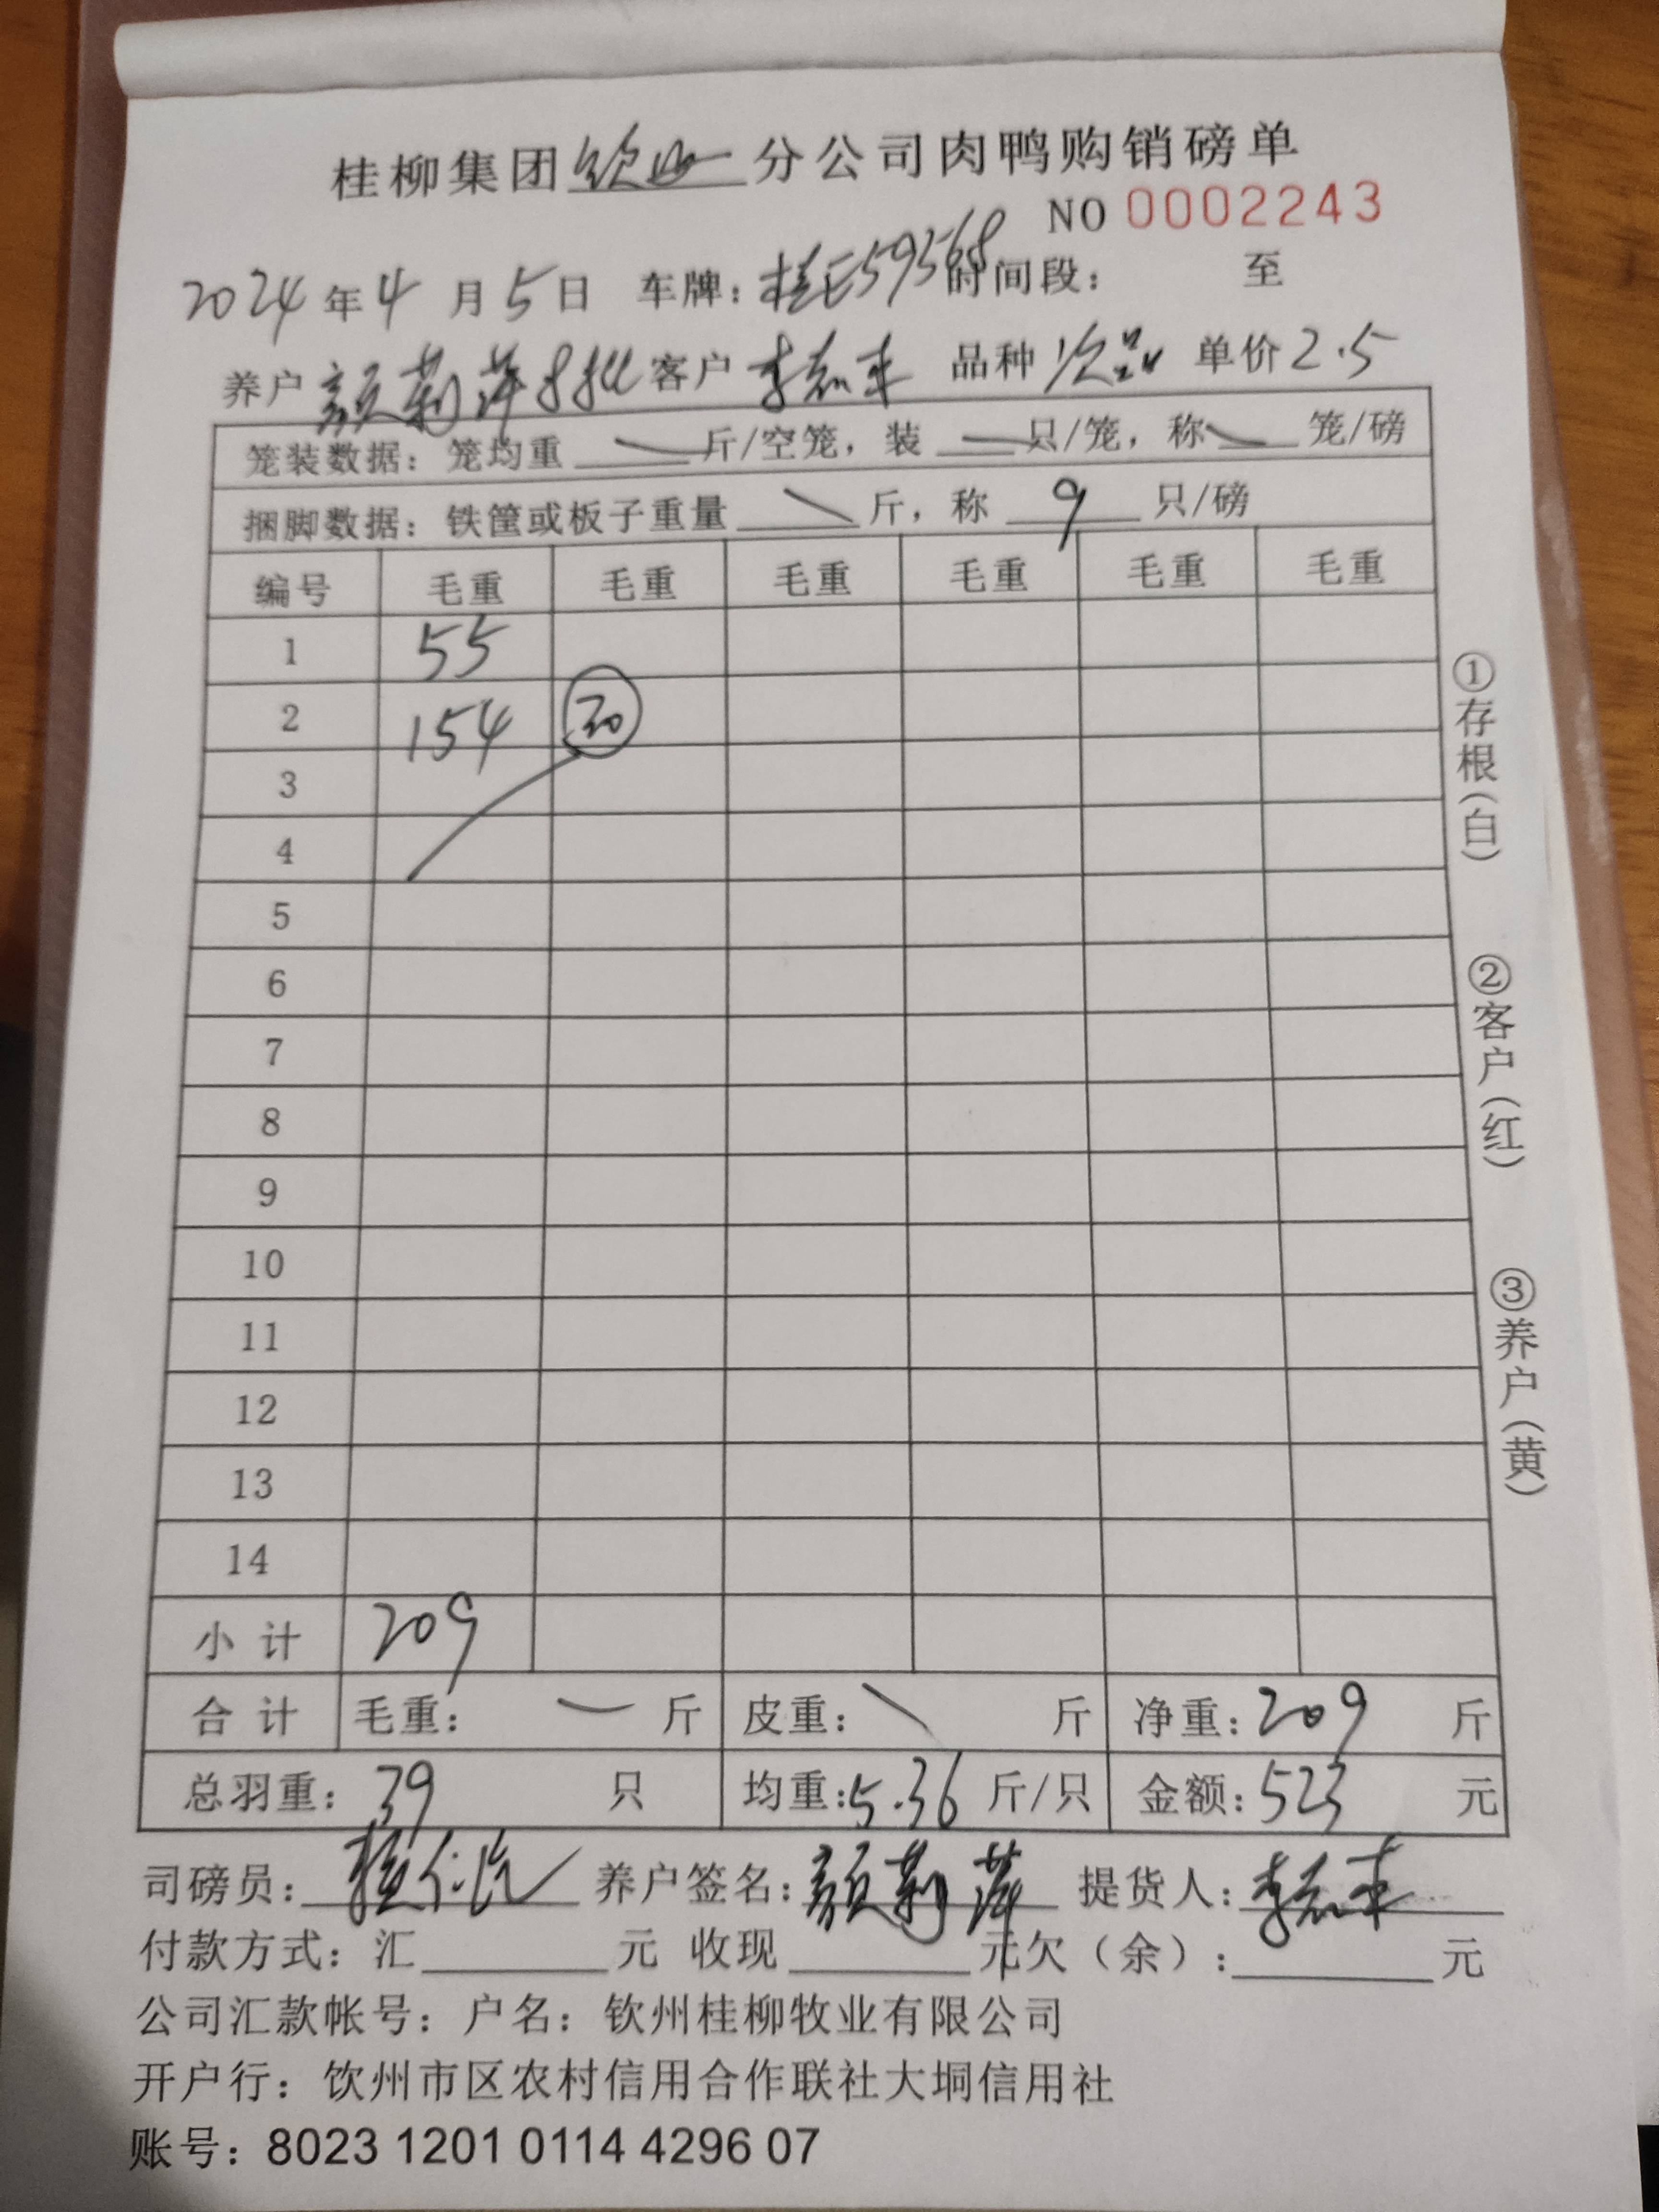 桂柳集团钦州分公司肉鸭购销磅单
NO 0002243
2024年4月5日 车牌：桂E59568 时间段： 至
养户 颜莉萍8批 客户 李志来 品种 次品 单价 2.5
笼装数据：笼均重 — 斤/空笼，装 — 只/笼，称 — 笼/磅
捆脚数据：铁筐或板子重量 \ 斤，称 9 只/磅
编号 毛重 毛重 毛重 毛重 毛重 毛重
1 55
2 154 30
3
4
5
6
7
8
9
10
11
12
13
14
小计 209
合计 毛重： — 斤 皮重： \ 斤 净重：209 斤
总羽重：39 只 均重：5.36 斤/只 金额：523 元
司磅员： 养户签名：颜莉萍 提货人：李志来
付款方式：汇 元 收现 元欠（余）： 元
公司汇款帐号：户名：钦州桂柳牧业有限公司
开户行：饮州市区农村信用合作联社大垌信用社
账号：8023 1201 0114 4296 07
①存根（白）
②客户（红）
③养户（黄）